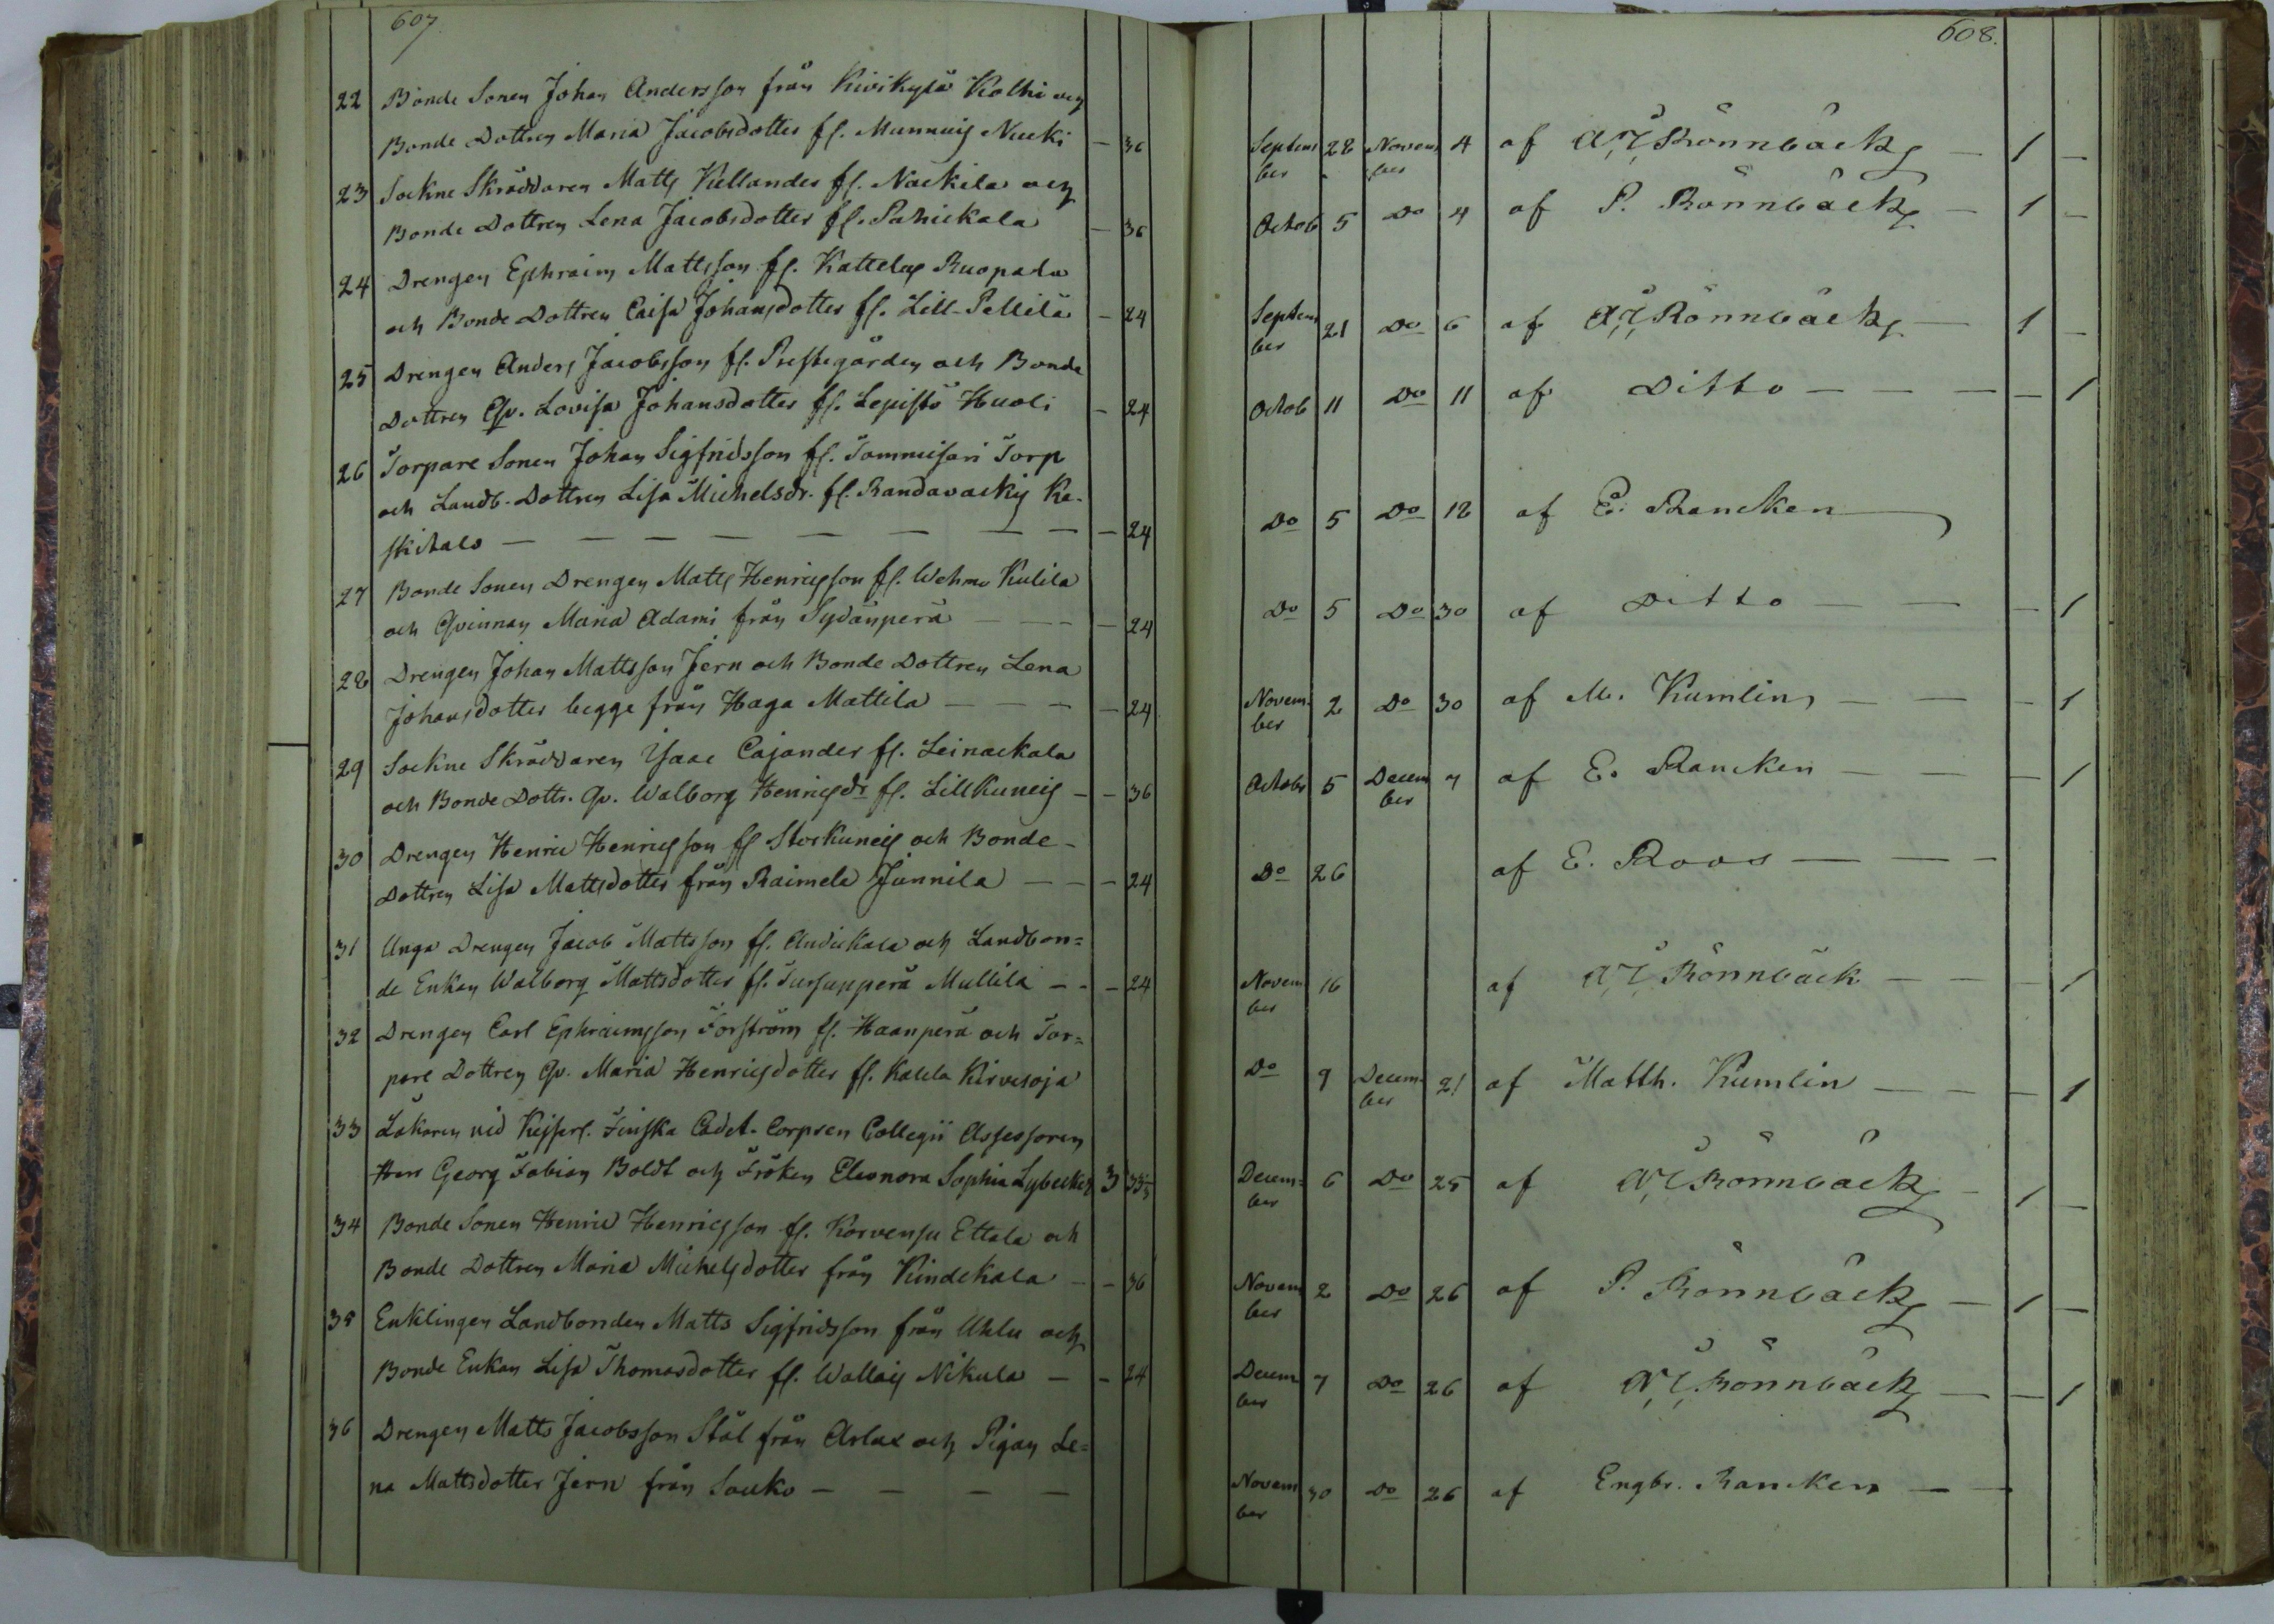 607
22 Bonde Sonen Johan Andersson från Kivikylä Kolhi och
Bonde Dottren Maria Jacobsdotter fl. Munnuis Nucki — 36
23 Sockne Skräddaren Matts Kellander fl. Nackila och
Bonde Dottren Lena Jacobsdotter fl. Pahickala — 36
24 Drengen Ephraim Mattsson fl. Kattelus Ruopada
och Bonde Dottren Caisa Johansdotter fl. Lill-Pellilä — 24
25 Drengen Anders Jacobsson fl. Prestegården och Bonde
Dottren Qv. Lovisa Johansdotter fl. Lepistö Huoli — 24
26 Torpare Sonen Johan Sigfridsson fl. Tammisari Torp
och Landb. Dottren Lisa Michelsdr. fl. Randavacky Ke-
skitalo — — — — — — — — 24
27 Bonde Sonen Drengen Matts Henricsson fl. Wehmo Kulila
och Qvinnan Maria Adami från Sydänperä — — — 24
28 Drengen Johan Mattsson Jern och Bonde Dottren Lena
Johansdotter begge från Haga Mattila — — — — 24
29 Sockne Skräddaren Isaac Cajander fl. Leinackala
och Bonde Dottr. Qv. Walborg Henricsdr fl. Lill Kuneis — — 36
30 Drengen Henric Henricsson fl Storkuneis och Bonde-
Dottren Lisa Mattsdotter från Raimela Junnila — — — 24
31 Unga Drengen Jacob Mattsson fl. Andickala och Landbon=
de Enkan Walborg Mattsdotter fl. Tursunperä Mullila — — — 24
32 Drengen Carl Ephraimsson Forström fl. Haanperä och Tor=
pare Dottren Qv. Maria Henricsdotter fl. Kalela Kirvesoja
33 Läkaren vid Kejserl. Finska Cadet-Corpsen Collegii Assessoren
Herr Georg Fabian Boldt och Fröken Eleonora Sophia Lybecker 3
34 Bonde Sonen Henric Henricsson fl. Korvensu Ettala och
Bonde Dottren Maria Michelsdotter från Kindekala — — 36
35 Enklingen Landbonden Matts Sigfridsson från Uhlu och
Bonde Enkan Lisa Thomasdotter fl. Wallais Nikula — — 24
36 Drengen Matts Jacobsson Stål från Arlax och Pigan Le=
na Mattsdotter Jern från Souko — — — —
608.
September 28 November 4 af Rönnbäck — 1 —
Octob 5 Do 4 af P. Rönnbäck — 1 —
September 21 Do 6 af Rönnbäck — 1 —
Octob 11 Do 11 af Ditto — — — — 1
Do 5 Do 12 af E. Rancken —
Do 5 Do 30 af Ditto — — — 1
November 2 Do 30 af M. Kumlin — — — 1
October 5 December 7 af E. Rancken — — — 1
Do 26 af E. Roos — — —
November 16 af Rönnbäck — — — 1
Do 9 December 21 af Matth. Kumlin — — — 1
December 6 Do 25 af Rönnbäck — 1 —
November 2 Do 26 af P. Rönnbäck — 1 —
December 7 Do 26 af Rönnbäck — — 1
November 30 Do 26 af Engbr. Rancken — —